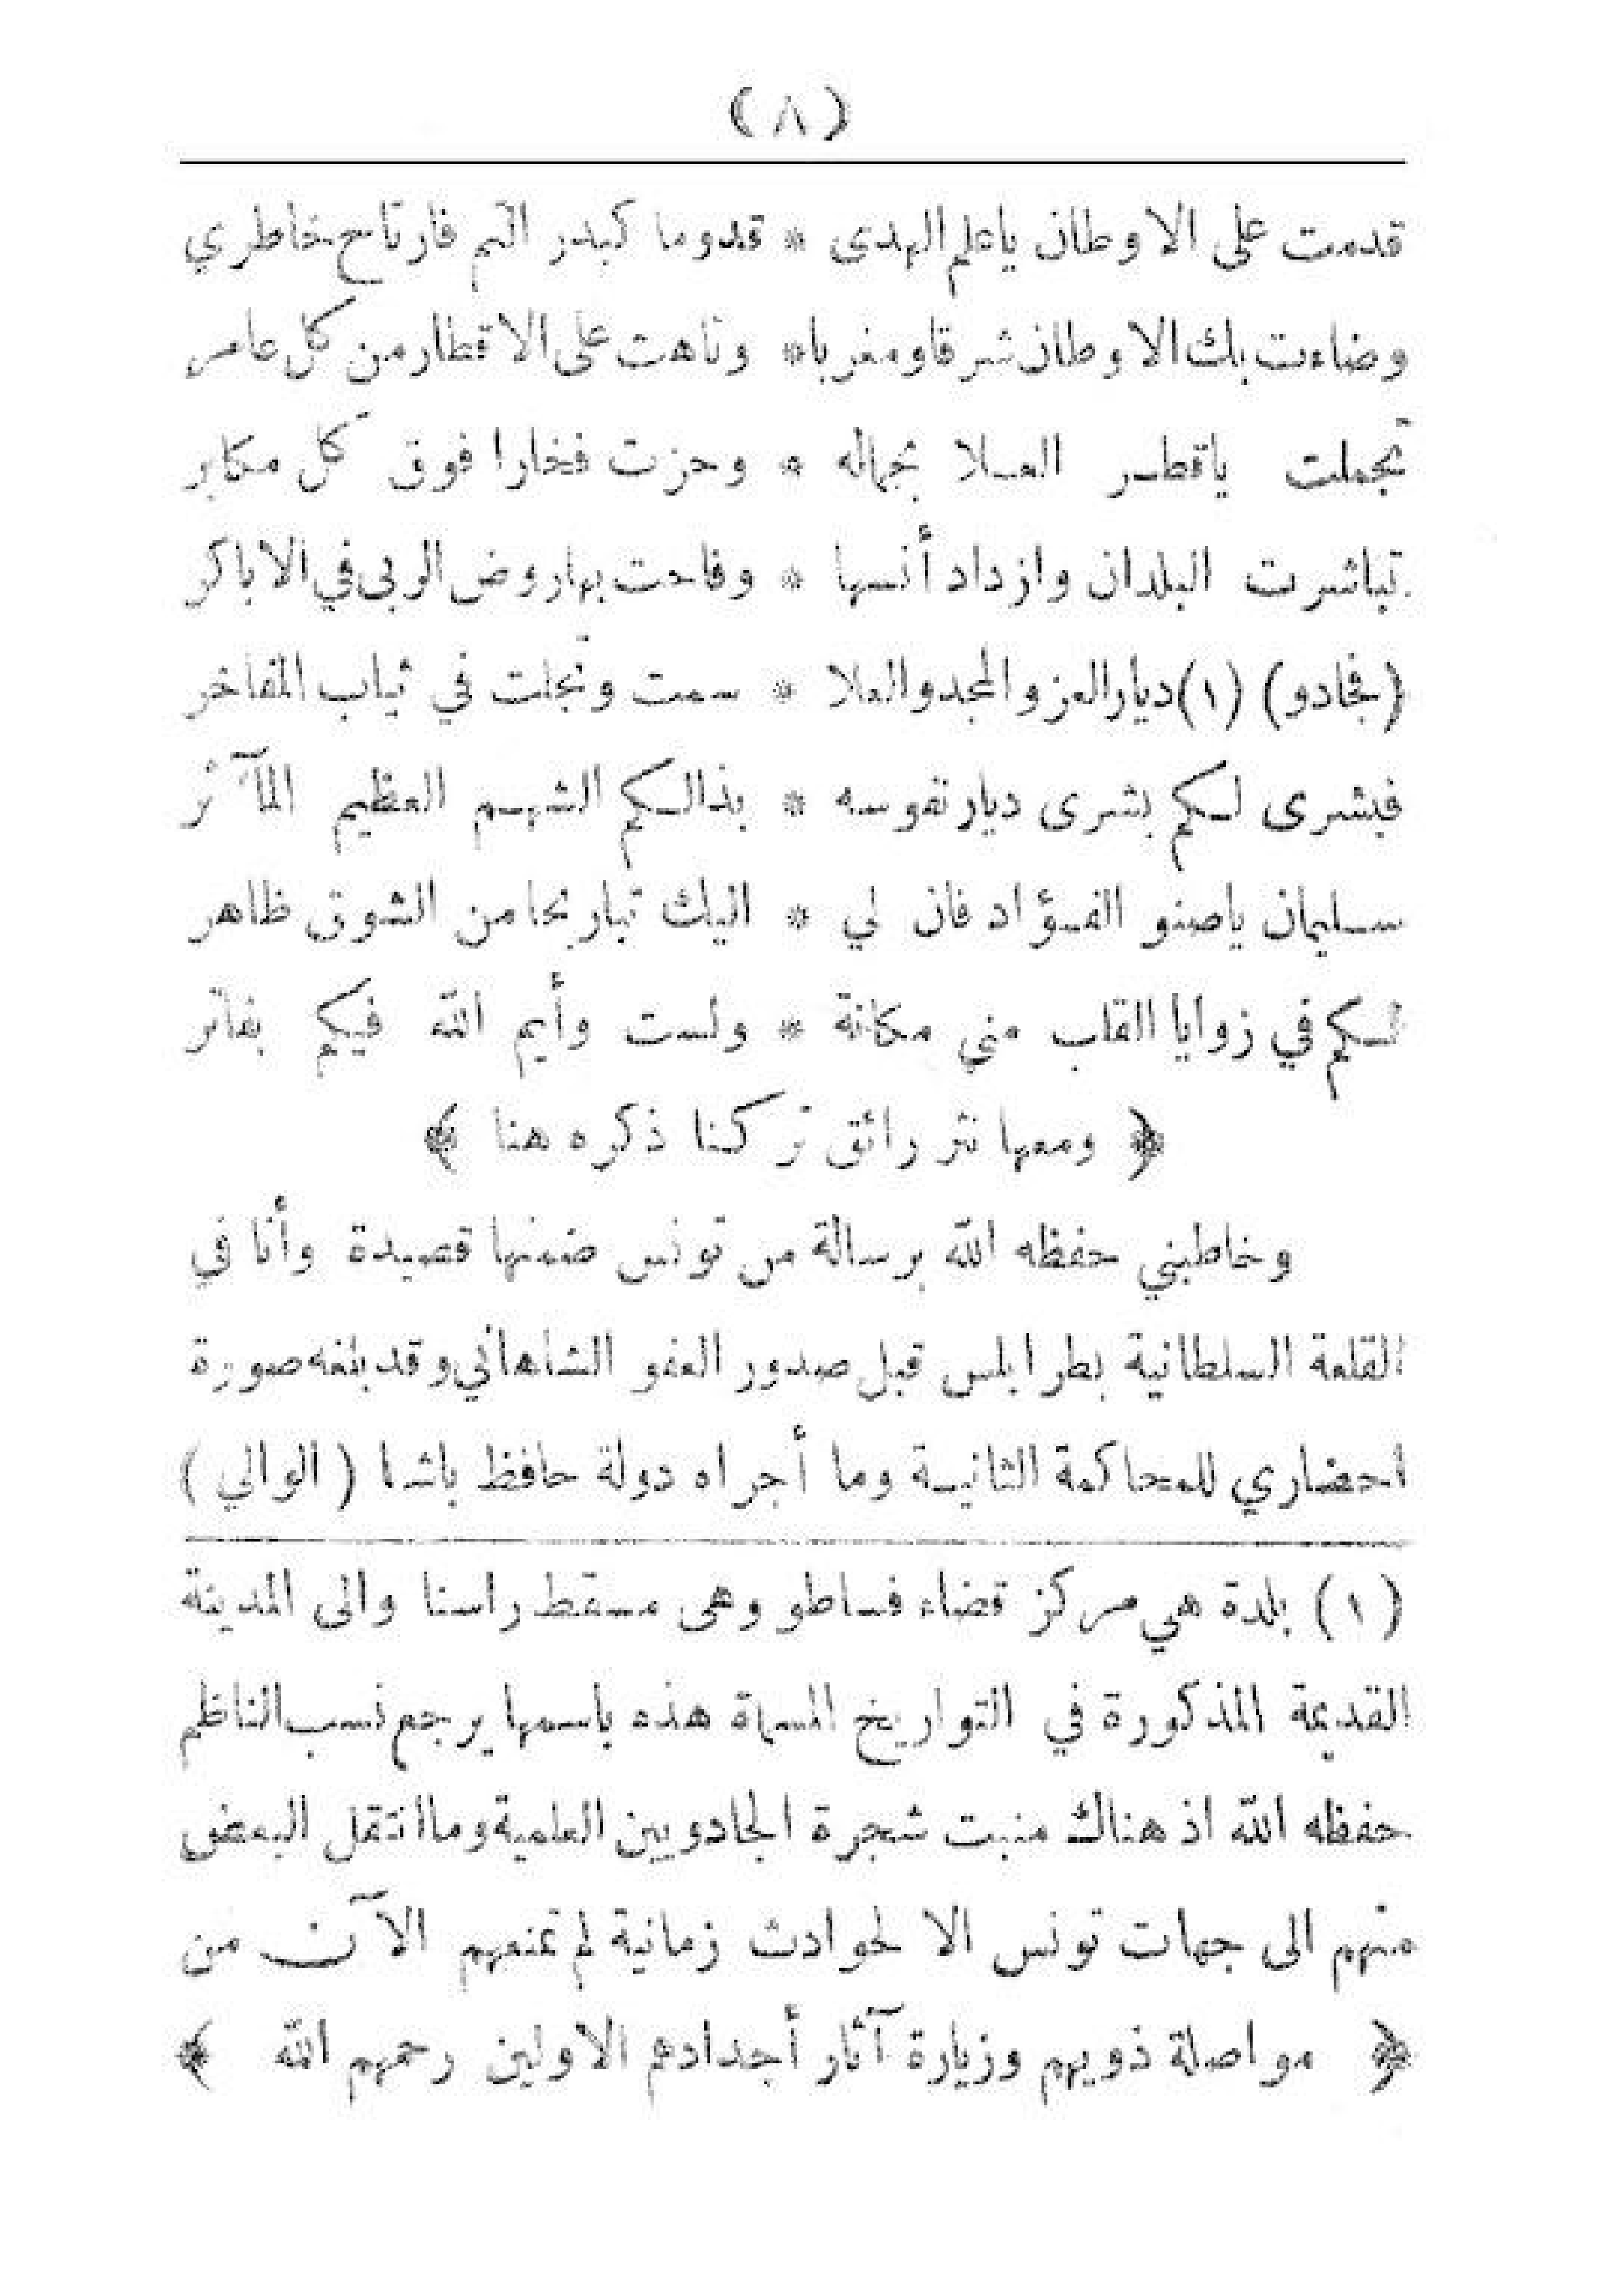 (٨)
قدمت على الاوطان ياعلم الهدى * قدوما كبدر التم فارتاح خاطري
وضاءت بك الاوطان شرقا ومغربا * وتاهت على الاقطار من كل عامر
تجملت ياقطر العلا بجماله * وحزت فخارا فوق كل مكابر
تباشرت البلدان وازداد أنسها * وفاحت بها روض الربى في الاباكر
(فجادو) (١) ديار العز والمجد والعلا * سمت وتجلت في ثياب المفاخر
فبشرى لكم بشرى ديار نفوسه * بذالكم الشهم العظيم المآثر
سليمان ياصنو الفؤاد فان لي * اليك تباريحا من الشوق ظاهر
لكم في زوايا القلب مني مكانة * ولست وأيم الله فيكم بفاتر
﴿ ومعها نثر رائق تركنا ذكره هنا ﴾
وخاطبني حفظه الله برسالة من تونس ضمنها قصيدة وأنا في
القلعة السلطانية بطرابلس قبل صدور العفو الشاهاني وقد بلغه صورة
احضاري للمحاكمة الثانية وما أجراه دولة حافظ باشا (الوالي)
(١) بلدة هي مركز قضاء فساطو وهى مسقط راسنا والى المدينة
القديمة المذكورة في التواريخ المسماة هذه باسمها يرجع نسب الناظم
حفظه الله اذ هناك منبت شجرة الجادويين العلمية وما انتقل البعض
منهم الى جهات تونس الا لحوادث زمانية لم تمنعهم الآن من
﴿ مواصلة ذويهم وزيارة آثار أجدادهم الاولين رحمهم الله ﴾